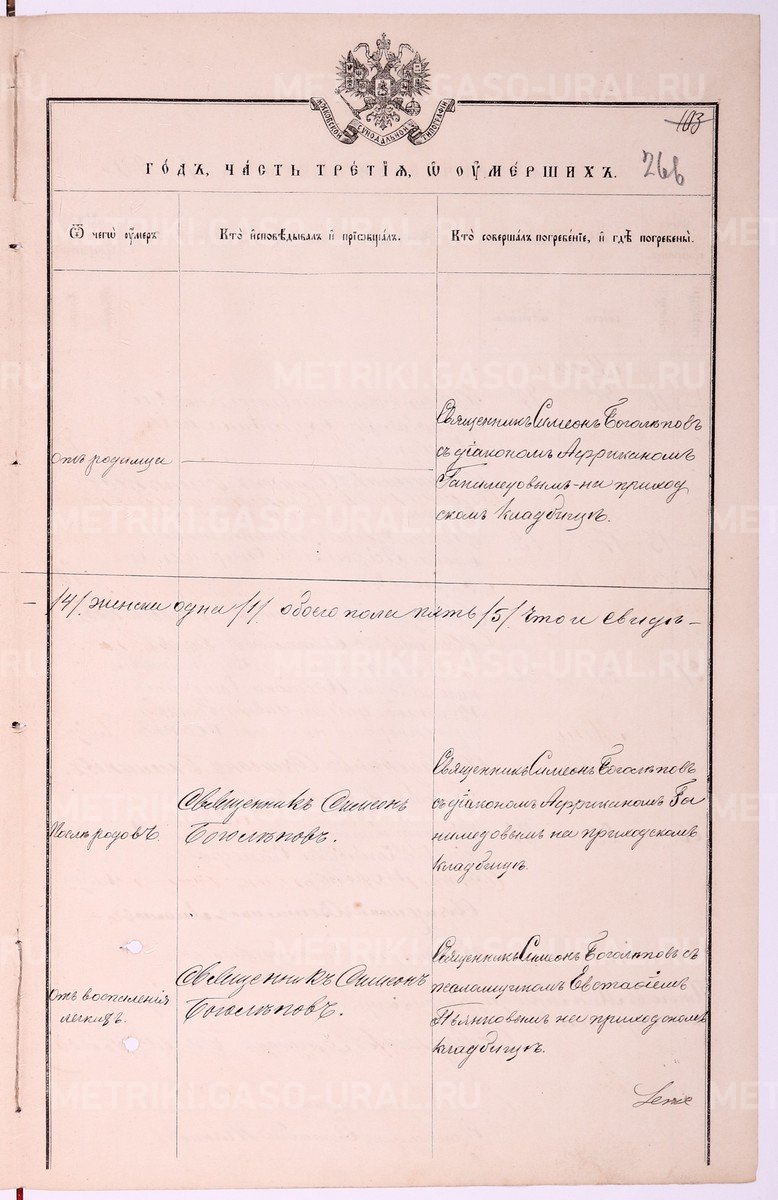 МОСКОВСКОЙ СѴНОДАЛЬНОЙ ТИПОГРАФІИ
103
ГОДЪ, ЧАСТЬ ТРЕТІЯ, Ѿ ОУМЕРШИХЪ.
266
Ѿ чегѡ оумеръ
Кто исповѣдывалъ и пріобщалъ.
Кто совершалъ погребеніе, и гдѣ погребены.
Отъ родимца
Священникъ Симеонъ Боголѣповъ
съ діакономъ Африканомъ
Ганимедовымъ на приход
скомъ кладбищѣ.
/4/ женска одна /1/ обоего пола пять /5/ что и свидѣ-
Послѣ родовъ.
Священникъ Симеонъ
Боголѣповъ.
Священникъ Симеонъ Боголѣповъ
съ діакономъ Африканомъ Га
нимедовымъ на приходскомъ
кладбищѣ.
Отъ воспаленія
легкихъ.
Священникъ Симеонъ
Боголѣповъ.
Священникъ Симеонъ Боголѣповъ съ
псаломщикомъ Евстафіемъ
Пьянковымъ на приходскомъ
кладбищѣ.
METRIKI.GASO-URAL.RU